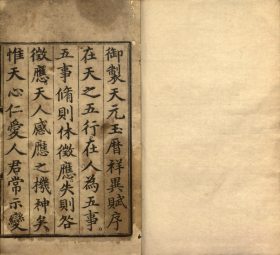 御製天元玉曆祥異賦序
在天之五行在人為五事
五事脩則休徵應失則咎
徵應天人感應之機神矣
惟天心仁愛人君常示變